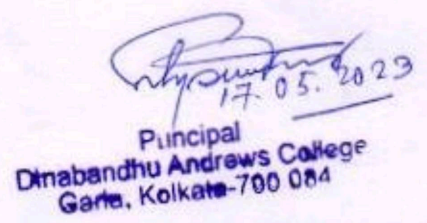 17.05.2023
Principal
Dinabandhu Andrews College
Garia, Kolkata-700 084